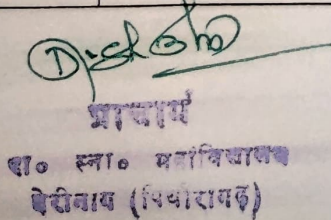 प्राचार्य
रा० स्ना० महाविद्यालय
बेरीनाग (पिथौरागढ़)